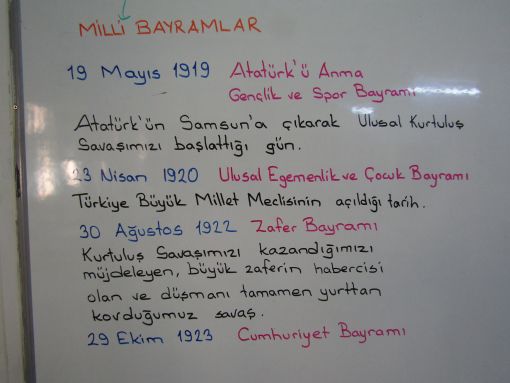 MİLLİ BAYRAMLAR
19 Mayıs 1919 Atatürk'ü Anma
Gençlik ve Spor Bayramı
Atatürk'ün Samsun'a çıkarak Ulusal Kurtuluş
Savaşımızı başlattığı gün.
23 Nisan 1920 Ulusal Egemenlik ve Çocuk Bayramı
Türkiye Büyük Millet Meclisinin açıldığı tarih.
30 Ağustos 1922 Zafer Bayramı
Kurtuluş Savaşımızı kazandığımızı
müjdeleyen, büyük zaferin habercisi
olan ve düşmanı tamamen yurttan
kovduğumuz savaş.
29 Ekim 1923 Cumhuriyet Bayramı